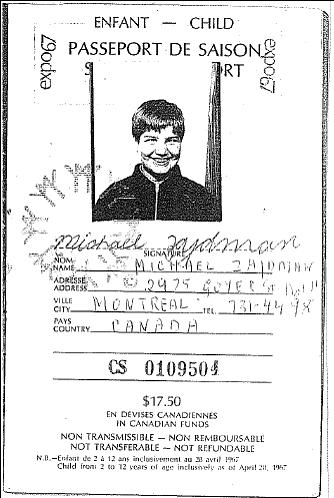 ENFANT — CHILD
expo67
expo67
PASSEPORT DE SAISON
S RT
Michael Zajdman
SIGNATURE
NOM
NAME MICHAEL ZAJDMAN
ADRESSE
ADDRESS 2975 GOYER ST
VILLE
CITY MONTREAL TEL. 731-44
PAYS
COUNTRY CANADA
CS 0109504
$17.50
EN DEVISES CANADIENNES
IN CANADIAN FUNDS
NON TRANSMISSIBLE — NON REMBOURSABLE
NOT TRANSFERABLE — NOT REFUNDABLE
N.B.—Enfant de 2 à 12 ans inclusivement au 28 avril 1967
Child from 2 to 12 years of age inclusively as of April 28, 1967